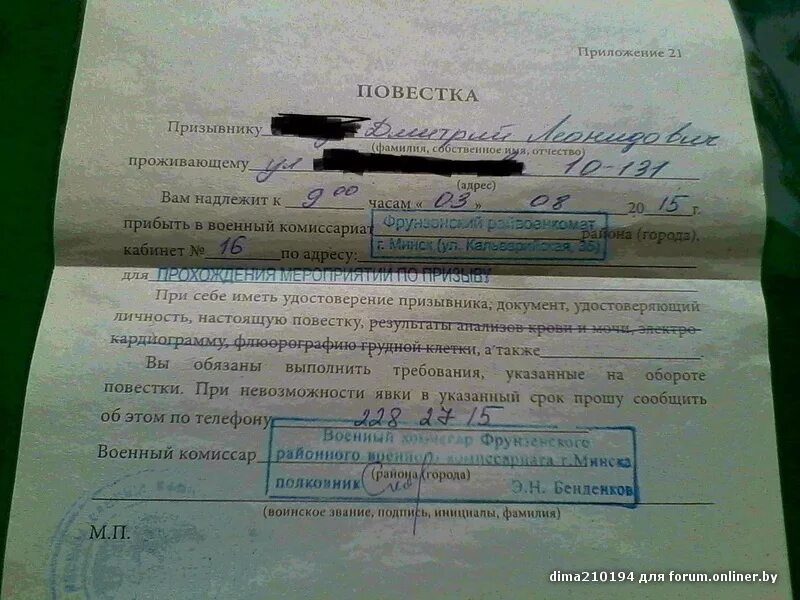 Приложение 21
ПОВЕСТКА
Призывнику Дмитрий Леонидович
(фамилия, собственное имя, отчество)
проживающему ул 10-131
(адрес)
Вам надлежит к 9 00 часам « 03 » 08 20 15 г.
прибыть в военный комиссариат Фрунзенский райвоенкомат района (города),
г. Минск (ул. Кальварийская, 35)
кабинет № 16 по адресу:
для ПРОХОЖДЕНИЯ МЕРОПРИЯТИЙ ПО ПРИЗЫВУ
При себе иметь удостоверение призывника, документ, удостоверяющий
личность, настоящую повестку, результаты анализов крови и мочи, электро-
кардиограмму, флюорографию грудной клетки, а также
Вы обязаны выполнить требования, указанные на обороте
повестки. При невозможности явки в указанный срок прошу сообщить
об этом по телефону 228 27 15
Военный комиссар Фрунзенского
Военный комиссар районного военного комиссариата г.Минска
(района (города)
полковник Э.Н. Бенденков
(воинское звание, подпись, инициалы, фамилия)
М.П.
dima210194 для forum.onliner.by